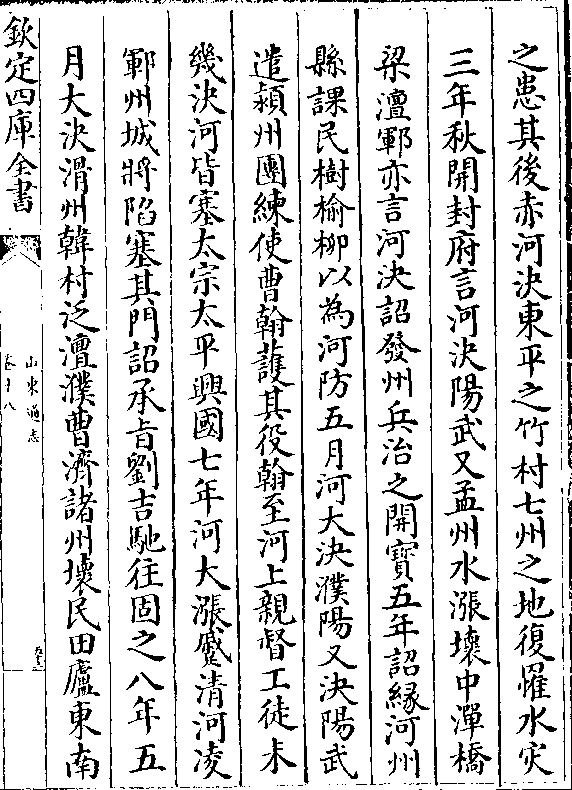 之患其後赤河決東平之竹村七州之地復罹水灾
三年秋開封府言河決陽武又孟州水漲壞中潬橋
梁澶鄆亦言河決詔發州兵治之開寶五年詔縁河州
縣課民樹榆柳以為河防五月河大決濮陽又決陽武
遣潁州團練使曹翰䕶其役翰至河上親督工徒未
幾決河皆塞太宗太平興國七年河大漲蹙清河凌
鄆州城將陷塞其門詔承㫖劉吉馳往固之八年五
月大決滑州韓村泛澶濮曹濟諸州壞民田廬東南
欽定四庫全書
山東通志
卷十八